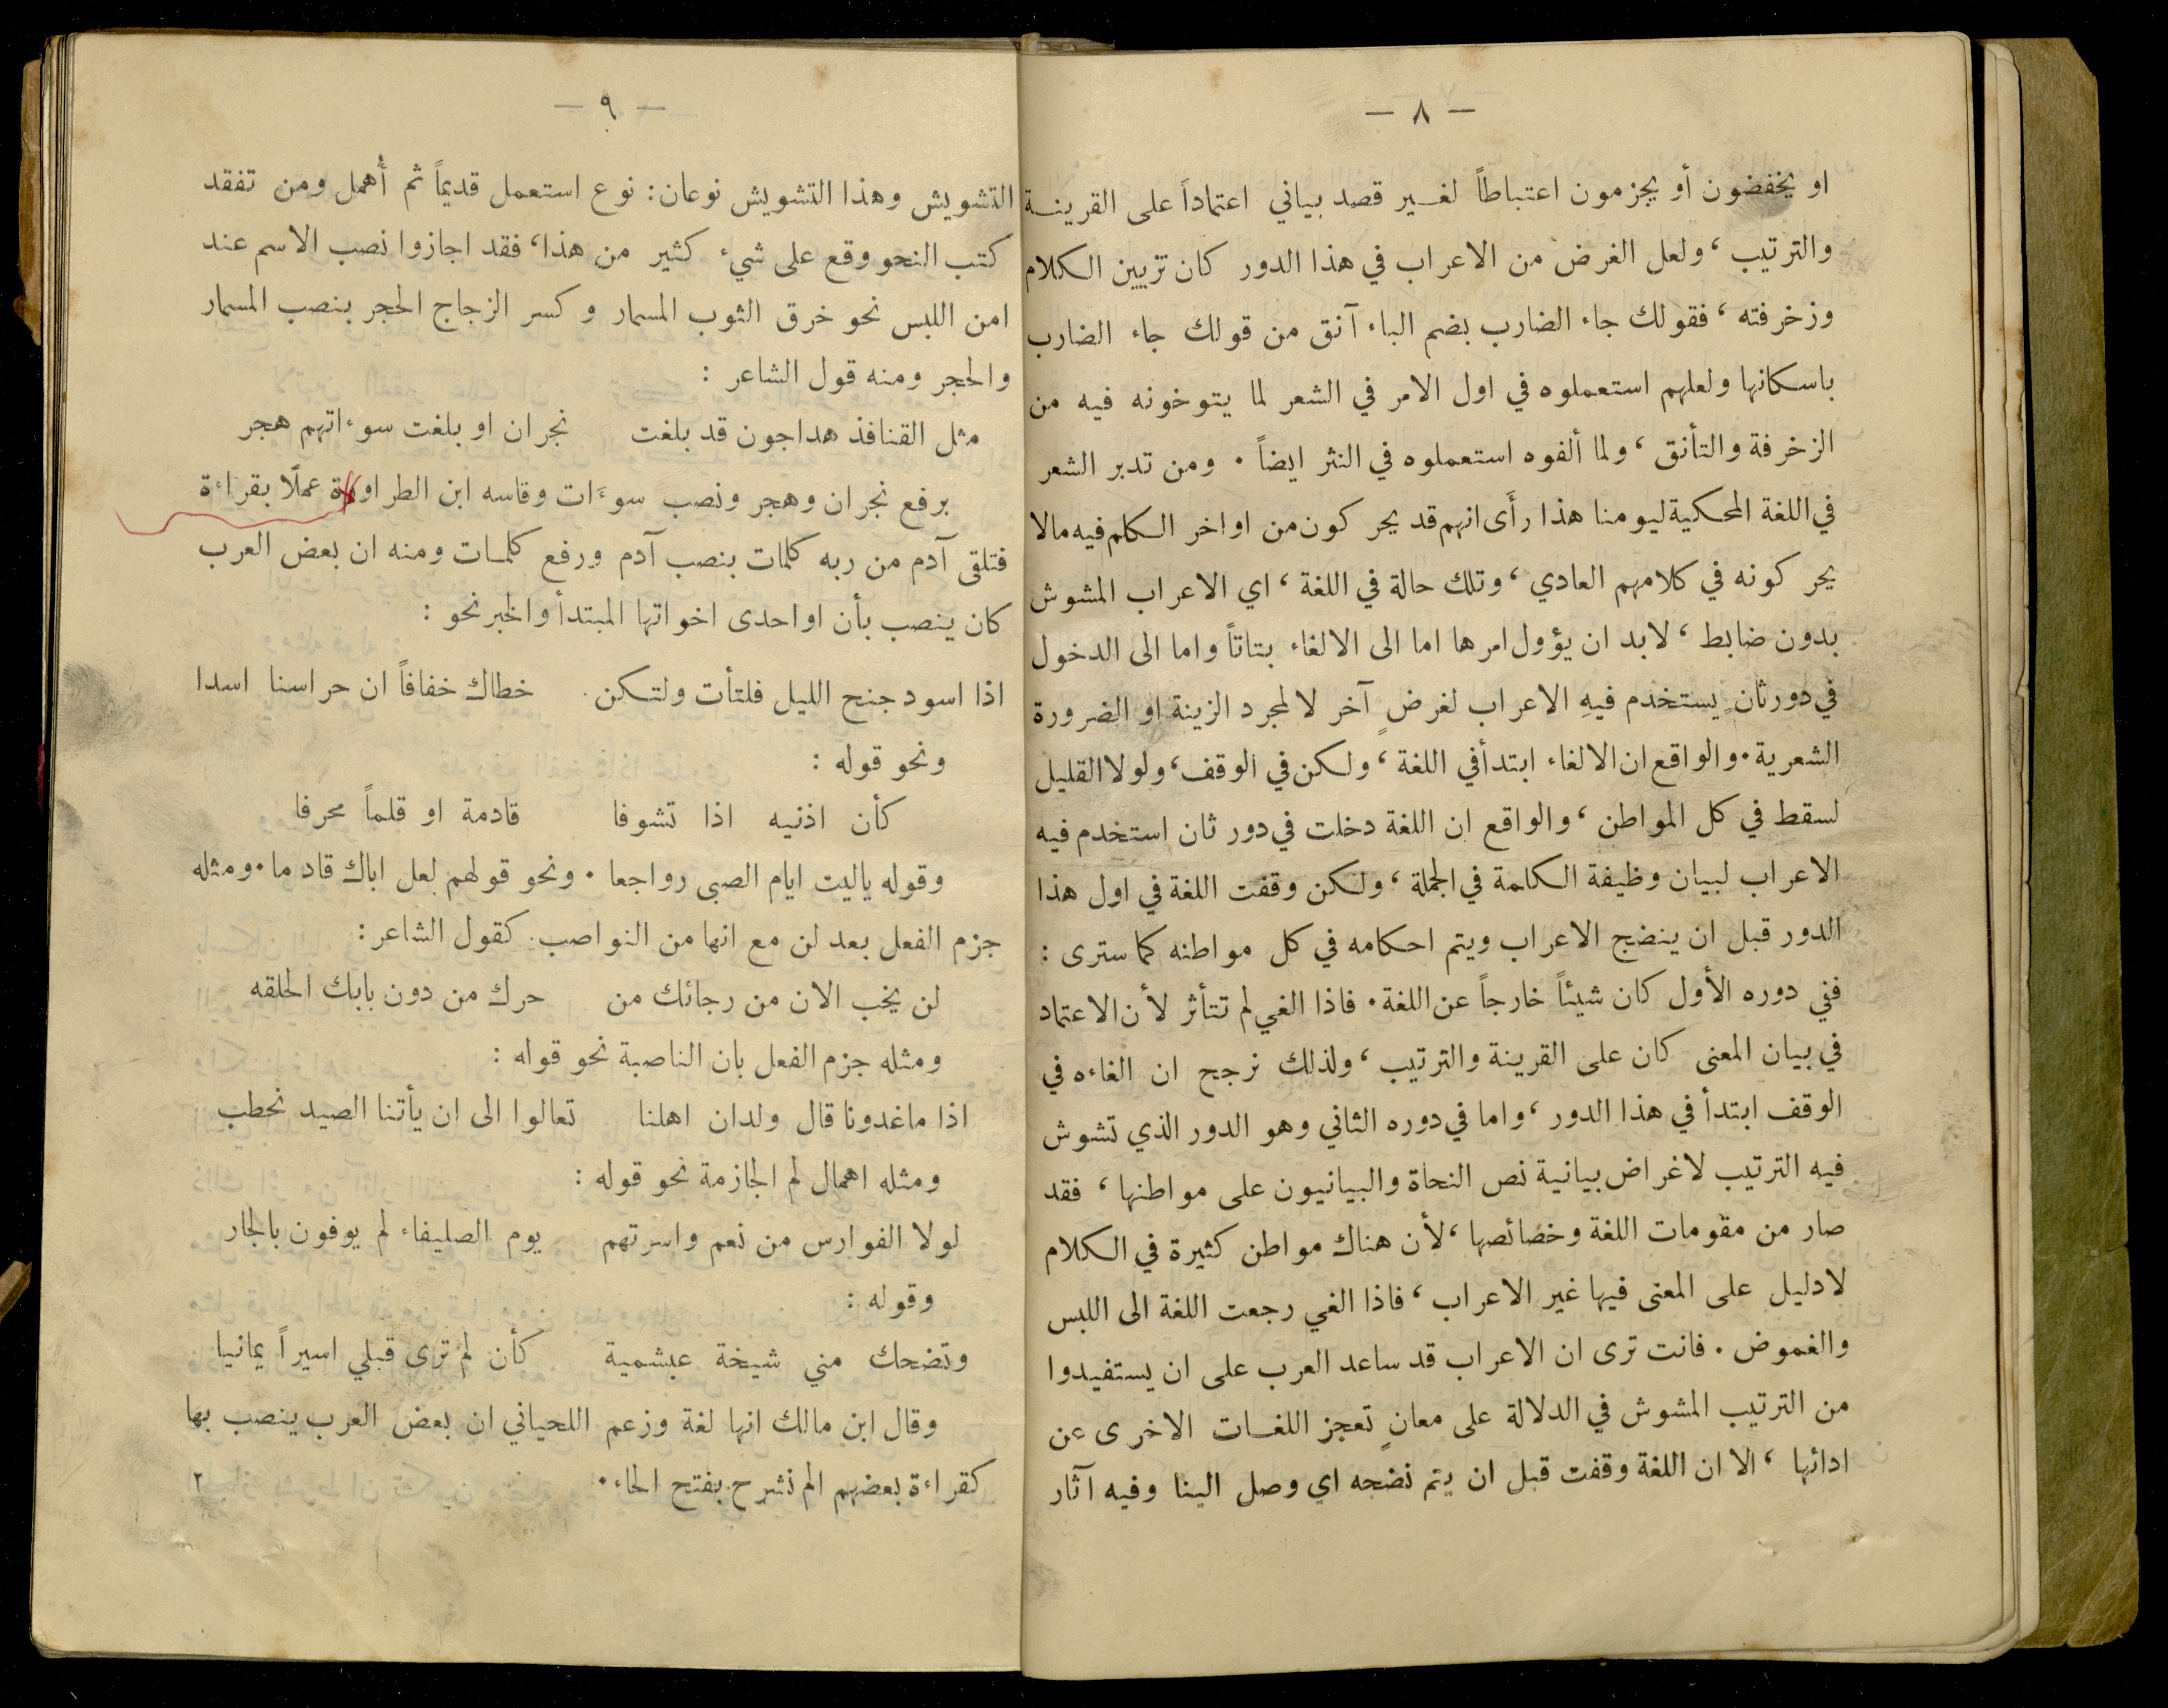 — ٨ —
او يخفضون أو يجزمون اعتباطاً لغير قصد بياني اعتماداً على القرينة
والترتيب ، ولعل الغرض من الاعراب في هذا الدور كان تزيين الكلام
وزخرفته ، فقولك جاء الضارب بضم الباء آنق من قولك جاء الضارب
باسكانها ولعلهم استعملوه في اول الامر في الشعر لما يتوخونه فيه من
الزخرفة والتأنق ، ولما ألفوه استعملوه في النثر ايضاً . ومن تدبر الشعر
في اللغة المحكية ليومنا هذا رأَى انهم قد يحركون من اواخر الكلم فيه مالا
يحركونه في كلامهم العادي ، وتلك حالة في اللغة ، اي الاعراب المشوش
بدون ضابط ، لابد ان يؤول امرها اما الى الالغاء بتاتاً واما الى الدخول
في دور ثانٍ يستخدم فيهِ الاعراب لغرضٍ آخر لا لمجرد الزينة او الضرورة
الشعرية . والواقع ان الالغاء ابتدأ في اللغة ، ولكن في الوقف ، ولولا القليل
لسقط في كل المواطن ، والواقع ان اللغة دخلت في دور ثان استخدم فيه
الاعراب لبيان وظيفة الكلمة في الجملة ، ولكن وقفت اللغة في اول هذا
الدور قبل ان ينضج الاعراب ويتم احكامه في كل مواطنه كما سترى :
ففي دوره الأول كان شيئاً خارجاً عن اللغة . فاذا الغي لم تتأثر لأن الاعتماد
في بيان المعنى كان على القرينة والترتيب ، ولذلك نرجح ان الغاءه في
الوقف ابتدأ في هذا الدور ، واما في دوره الثاني وهو الدور الذي تشوش
فيه الترتيب لاغراض بيانية نص النحاة والبيانيون على مواطنها ، فقد
صار من مقومات اللغة وخصائصها ، لأن هناك مواطن كثيرة في الكلام
لا دليل على المعنى فيها غير الاعراب ، فاذا الغي رجعت اللغة الى اللبس
والغموض . فانت ترى ان الاعراب قد ساعد العرب على ان يستفيدوا
من الترتيب المشوش في الدلالة على معانٍ تعجز اللغات الاخرى عن
ادائها ، الا ان اللغة وقفت قبل ان يتم نضجه اي وصل الينا وفيه آثار
— ٩ —
التشويش وهذا التشويش نوعان : نوع استعمل قديماً ثم أُهمل ومن تفقد
كتب النحو وقع على شيء كثير من هذا ، فقد اجازوا نصب الاسم عند
امن اللبس نحو خرق الثوب المسمار و كسر الزجاج الحجر بنصب المسمار
والحجر ومنه قول الشاعر :
مثل القنافذ هداجون قد بلغت نجران او بلغت سوءاتهم هجر
برفع نجران وهجر ونصب سوءَات وقاسه ابن الطراوة عملًا بقراءة
فتلقى آدم من ربه كلمات بنصب آدم ورفع كلمات ومنه ان بعض العرب
كان ينصب بأن او احدى اخواتها المبتدأ والخبر نحو :
اذا اسود جنح الليل فلتأت ولتكن خطاك خفافاً ان حراسنا اسدا
ونحو قوله :
كأن اذنيه اذا تشوفا قادمة او قلماً محرفا
وقوله ياليت ايام الصبى رواجعا . ونحو قولهم لعل اباك قادما . ومثله
جزم الفعل بعد لن مع انها من النواصب كقول الشاعر :
لن يخب الان من رجائك من حرك من دون بابك الحلقه
ومثله جزم الفعل بان الناصبة نحو قوله :
اذا ماغدونا قال ولدان اهلنا تعالوا الى ان يأتنا الصيد نحطب
ومثله اهمال لم الجازمة نحو قوله :
لولا الفوارس من نعم واسرتهم يوم الصليفاء لم يوفون بالجار
وقوله :
وتضحك مني شيخة عبشمية كأن لم ترى قبلي اسيراً يمانيا
وقال ابن مالك انها لغة وزعم اللحياني ان بعض العرب ينصب بها
كقراءة بعضهم الم نشرح بفتح الحاء . ٢